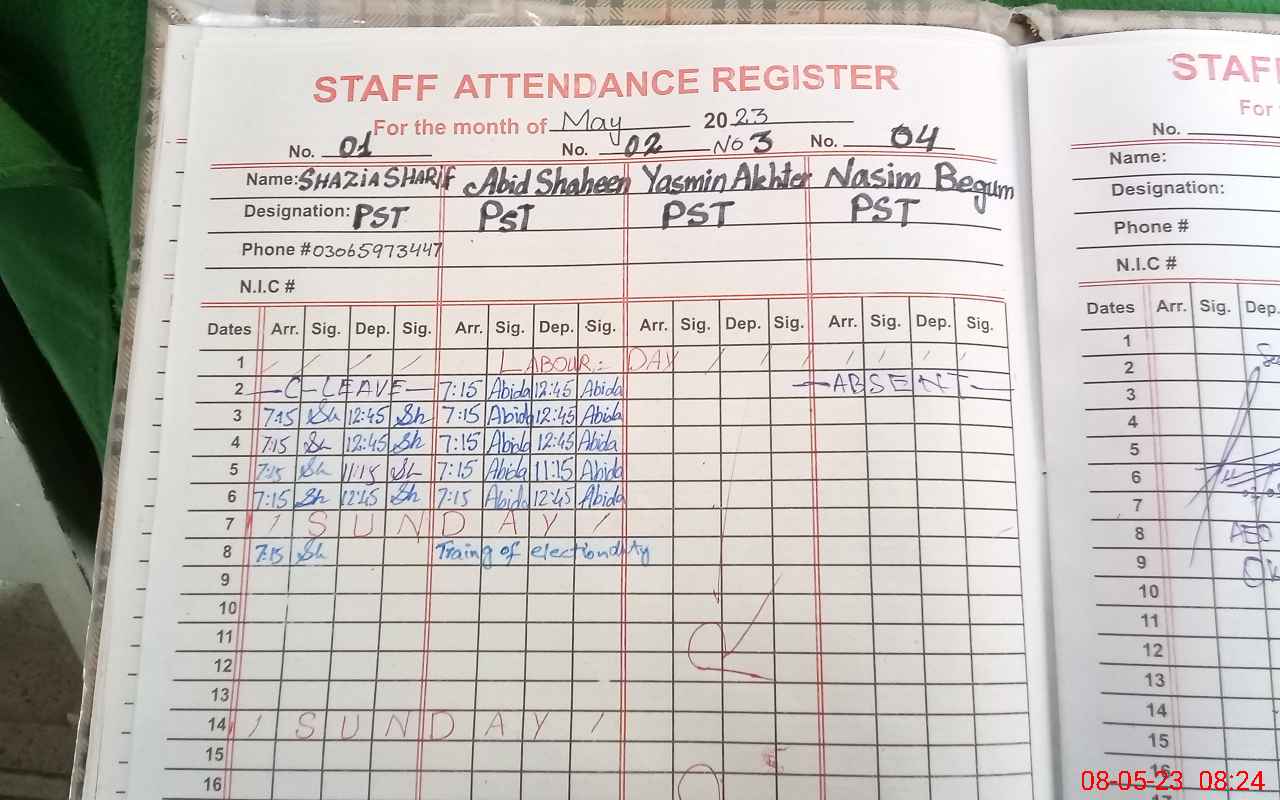 STAFF ATTENDANCE REGISTER
For the month of May 2023
No. 01 No. 02 No 3 No. 04
Name: SHAZIA SHARIF Abid Shaheen Yasmin Akhter Nasim Begum
Designation: PST PST PST PST
Phone # 03065973447
N.I.C #
Dates Arr. Sig. Dep. Sig. Arr. Sig. Dep. Sig. Arr. Sig. Dep. Sig. Arr. Sig. Dep. Sig.
1 LABOUR DAY
2 C-LEAVE 7:15 Abida 12:45 Abida ABSENT
3 7:15 Sh 12:45 Sh 7:15 Abida 12:45 Abida
4 7:15 Sh 12:45 Sh 7:15 Abida 12:45 Abida
5 7:15 Sh 11:15 Sh 7:15 Abida 11:15 Abida
6 7:15 Sh 12:45 Sh 7:15 Abida 12:45 Abida
7 SUNDAY
8 7:15 Sh Traing of election duty
9
10
11
12
13
14 SUNDAY
15
16
STAF
For
No.
Name:
Designation:
Phone #
N.I.C #
Dates Arr. Sig. Dep.
1
2
3
4
5
6
7
8 AEO
9
10
11
12
13
14
15
16
17
08-05-23 08:24